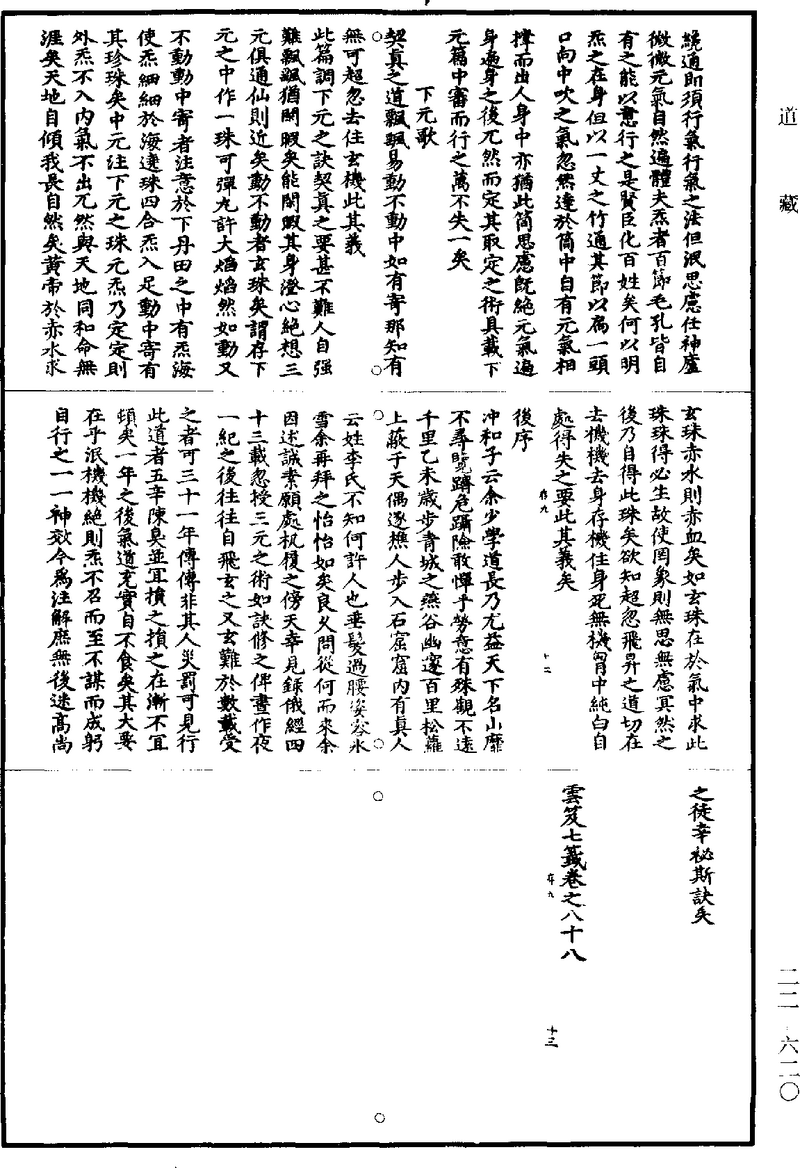 道藏
繞通即須行氣行氣之法但泯思慮任神廬
微微元氣自然遍體夫炁者百節毛孔皆自
有之能以意行之是賢臣化百姓矣何以明
炁之在身但以一丈之竹通其節以為一頭
口向中吹之氣忽然達於筒中自有元氣相
撞而出人身中亦猶此筒思慮既絕元氣遍
身遍身之後兀然而定其取定之術具載下
元篇中審而行之萬不失一矣
下元歌
契真之道飄飄易動不動中如有寄那知有
無可超忽去住玄機此其義
此篇調下元之訣契真之要甚不難人自強
難飄飄猶閑暇矣能閑暇其身澄心絕想三
元俱通仙則近矣動不動者玄珠矣謂存下
元之中作一珠可彈丸許大焰焰然如動又
不動動中寄者注意於下丹田之中有炁海
使炁細細於海達珠四合炁入足動中寄有
其珍珠矣中元注下元之珠元炁乃定定則
外炁不入內氣不出兀然與天地同和命無
涯矣天地自傾我長自然矣黃帝於赤水求
玄珠赤水則赤血矣如玄珠在於氣中求此
珠珠得必生故使罔象則無思無慮冥然之
後乃自得此珠矣欲知超忽飛昇之道切在
去機機去身存機住身死無機胷中純白自
處得失之要此其義矣
存九
十二
後序
冲和子云余少學道長乃尤益天下名山靡
不尋覽躋危躡險敢憚乎勞意有殊觀不遠
千里乙未歲步青城之燕谷幽邃百里松蘿
上蔽于天偶逐樵人步入石窟窟內有真人
云姓李氏不知何許人也垂髮過腰姿容冰
雪余再拜之怡怡如矣良久問從何而來余
因述誠素願處杖履之傍天幸見錄俄經四
十三載忽授三元之術如訣修之俾晝作夜
一紀之後往往自飛玄之又玄難於數載受
之者可三十一年傳傳非其人災罰可見行
此道者五辛陳臭並宜損之損之在漸不宜
頓矣一年之後氣道充實自不食矣其大要
在乎泯機機絕則炁不召而至不謀而成躬
自行之一一神效今為注解庶無後迷高尚
之徒幸祕斯訣矣
雲笈七籤卷之八十八
存九
十三
二二·六二〇